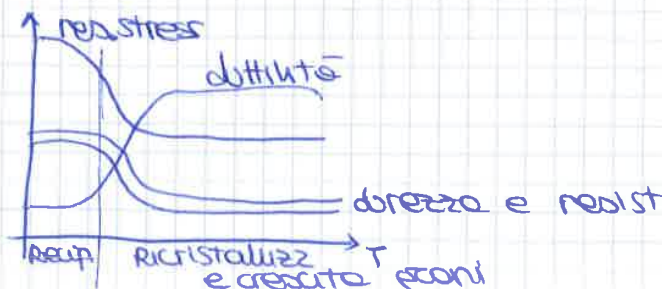 res.stress
duttilità
durezza e resist
Recup. Ricristallizz T
e crescita grani